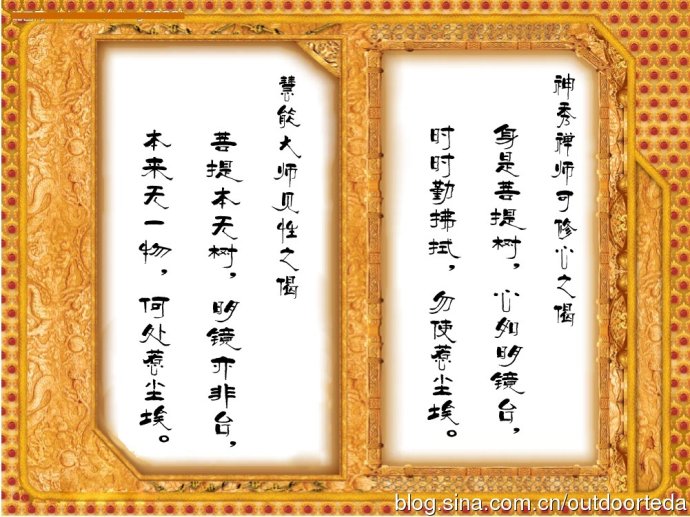 神秀禅师可修心之偈
身是菩提树，心如明镜台，
时时勤拂拭，勿使惹尘埃。
慧能大师见性之偈
菩提本无树，明镜亦非台，
本来无一物，何处惹尘埃。
blog.sina.com.cn/outdoorteda